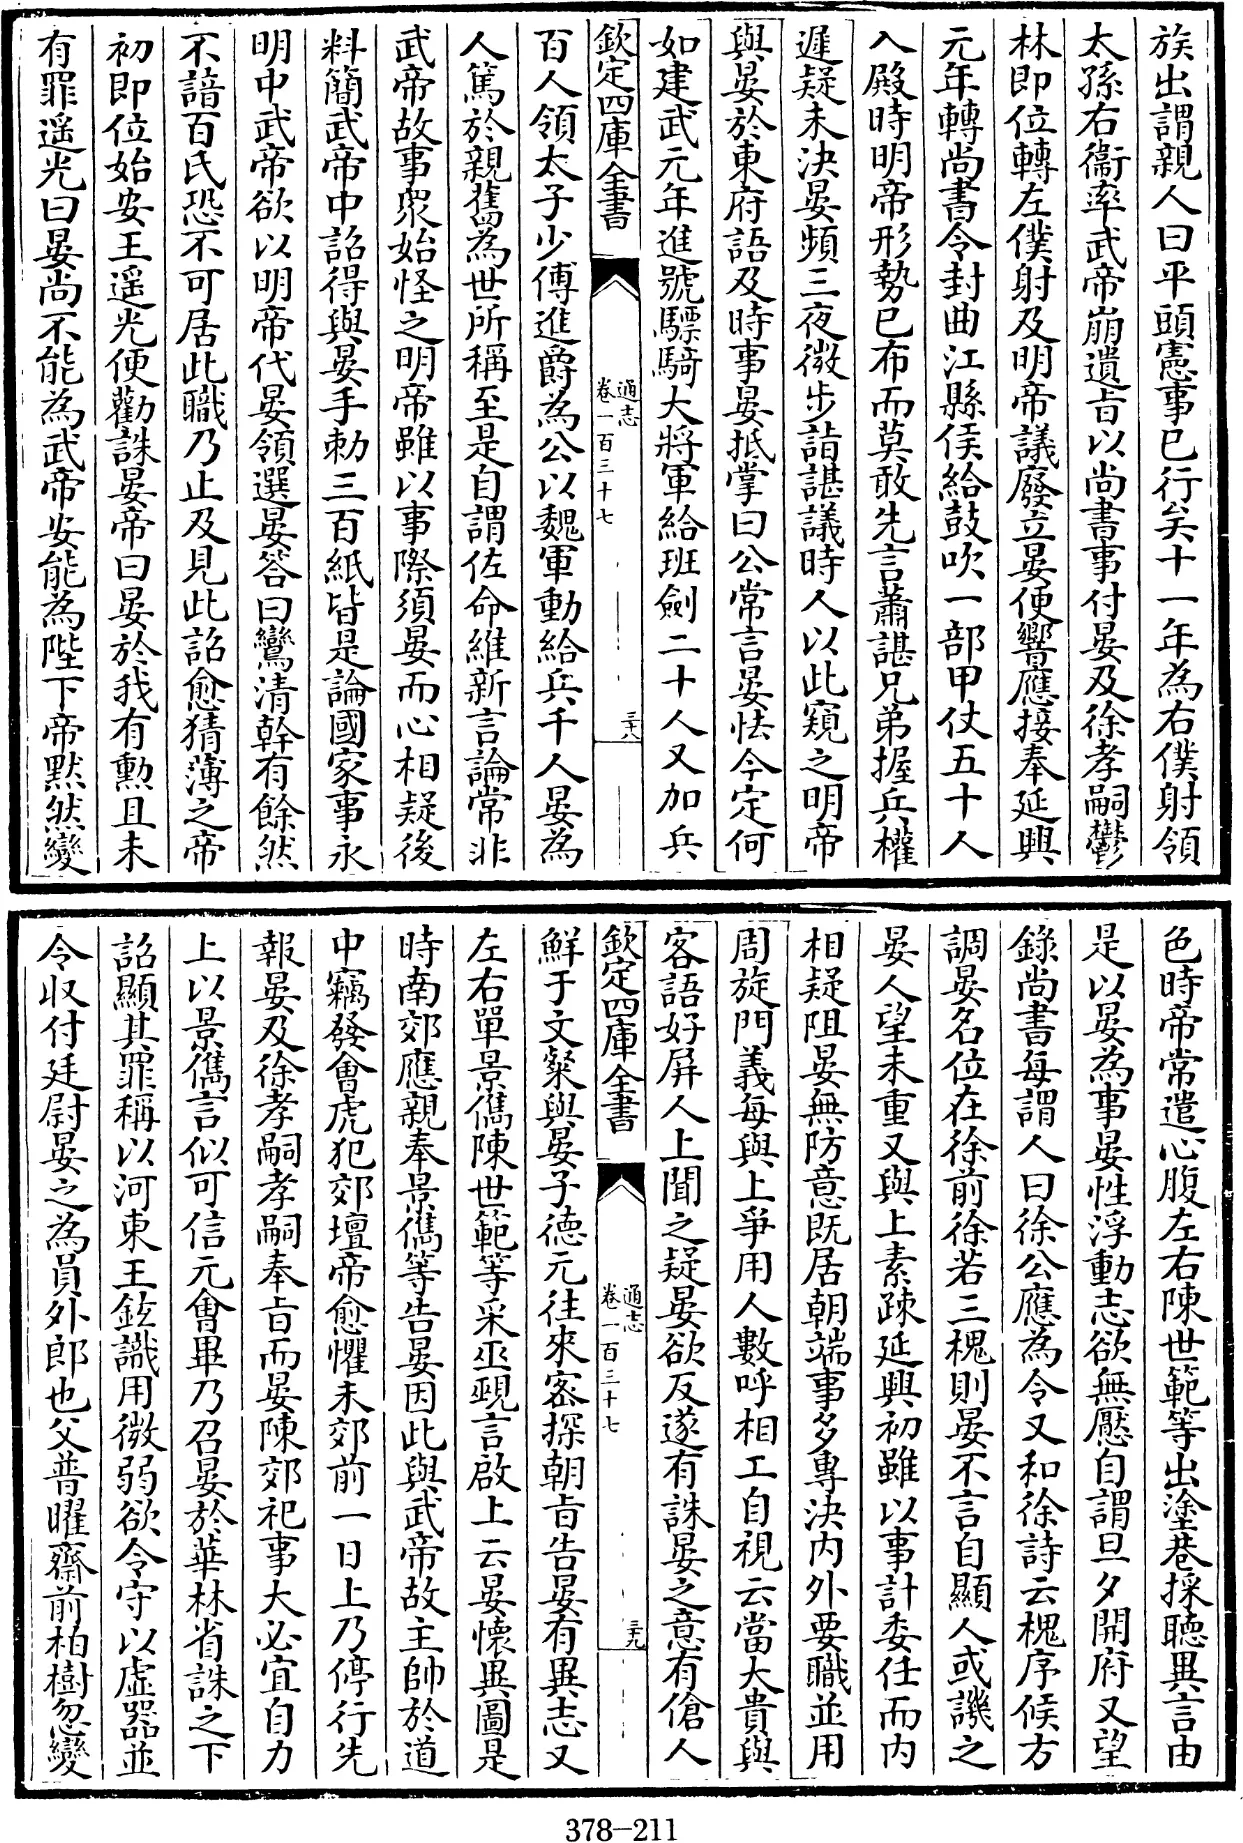 族出謂親人曰平頭憲事已行矣十一年為右僕射領
太孫右衞率武帝崩遺旨以尚書事付晏及徐孝嗣鬱
林即位轉左僕射及明帝議廢立晏便響應接奉延興
元年轉尚書令封曲江縣侯給鼓吹一部甲仗五十人
入殿時明帝形勢已布而莫敢先言蕭諶兄弟握兵權
遲疑未決晏頻三夜微步詣諶議時人以此窺之明帝
與晏於東府語及時事晏抵掌曰公常言晏怯今定何
如建武元年進號驃騎大將軍給班劍二十人又加兵
欽定四庫全書
通志
卷一百三十七
三十八
百人領太子少傅進爵為公以魏軍動給兵千人晏為
人篤於親舊為世所稱至是自謂佐命維新言論常非
武帝故事衆始怪之明帝雖以事際須晏而心相疑後
料簡武帝中詔得與晏手勅三百紙皆是論國家事永
明中武帝欲以明帝代晏領選晏答曰鸞清幹有餘然
不諳百氏恐不可居此職乃止及見此詔愈猜薄之帝
初即位始安王遥光便勸誅晏帝曰晏於我有勲且未
有罪遥光曰晏尚不能為武帝安能為陛下帝黙然變
色時帝常遣心腹左右陳世範等出塗巷採聽異言由
是以晏為事晏性浮動志欲無厭自謂旦夕開府又望
錄尚書每謂人曰徐公應為令又和徐詩云槐序候方
調晏名位在徐前徐若三槐則晏不言自顯人或譏之
晏人望未重又與上素疎延興初雖以事計委任而内
相疑阻晏無防意既居朝端事多專決内外要職並用
周旋門義每與上爭用人數呼相工自視云當大貴與
客語好屏人上聞之疑晏欲反遂有誅晏之意有傖人
欽定四庫全書
通志
卷一百三十七
三十九
鮮于文粲與晏子德元往來密探朝旨告晏有異志又
左右單景儁陳世範等采巫覡言啟上云晏懷異圖是
時南郊應親奉景儁等告晏因此與武帝故主帥於道
中竊發會虎犯郊壇帝愈懼未郊前一日上乃停行先
報晏及徐孝嗣孝嗣奉旨而晏陳郊祀事大必宜自力
上以景儁言似可信元會畢乃召晏於華林省誅之下
詔顯其罪稱以河東王鉉識用微弱欲令守以虚器並
令收付廷尉晏之為員外郎也父普曜齋前柏樹忽變
378-211